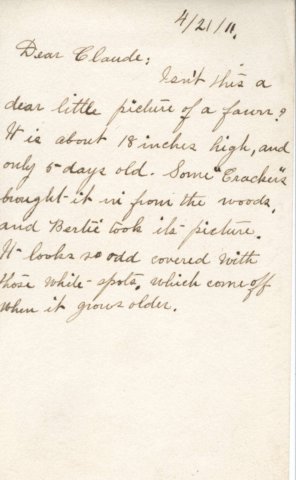 4/21/11.
Dear Claude;
Isn't this a
dear little picture of a fawn?
It is about 18 inches high, and
only 5 days old. Some "Crackers"
brought it in from the woods,
and Bertie took its picture.
It looks so odd covered with
those white spots, which come off
when it grows older.